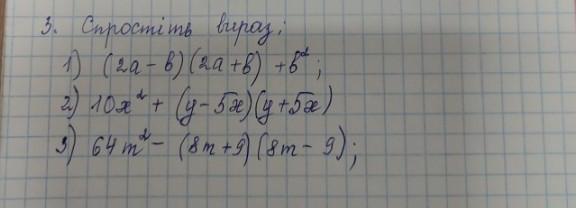 3. Спростіть вираз;
1) (2a - b)(2a + b) + b²;
2) 10x² + (y - 5x)(y + 5x)
3) 64m² - (8m + 9)(8m - 9);